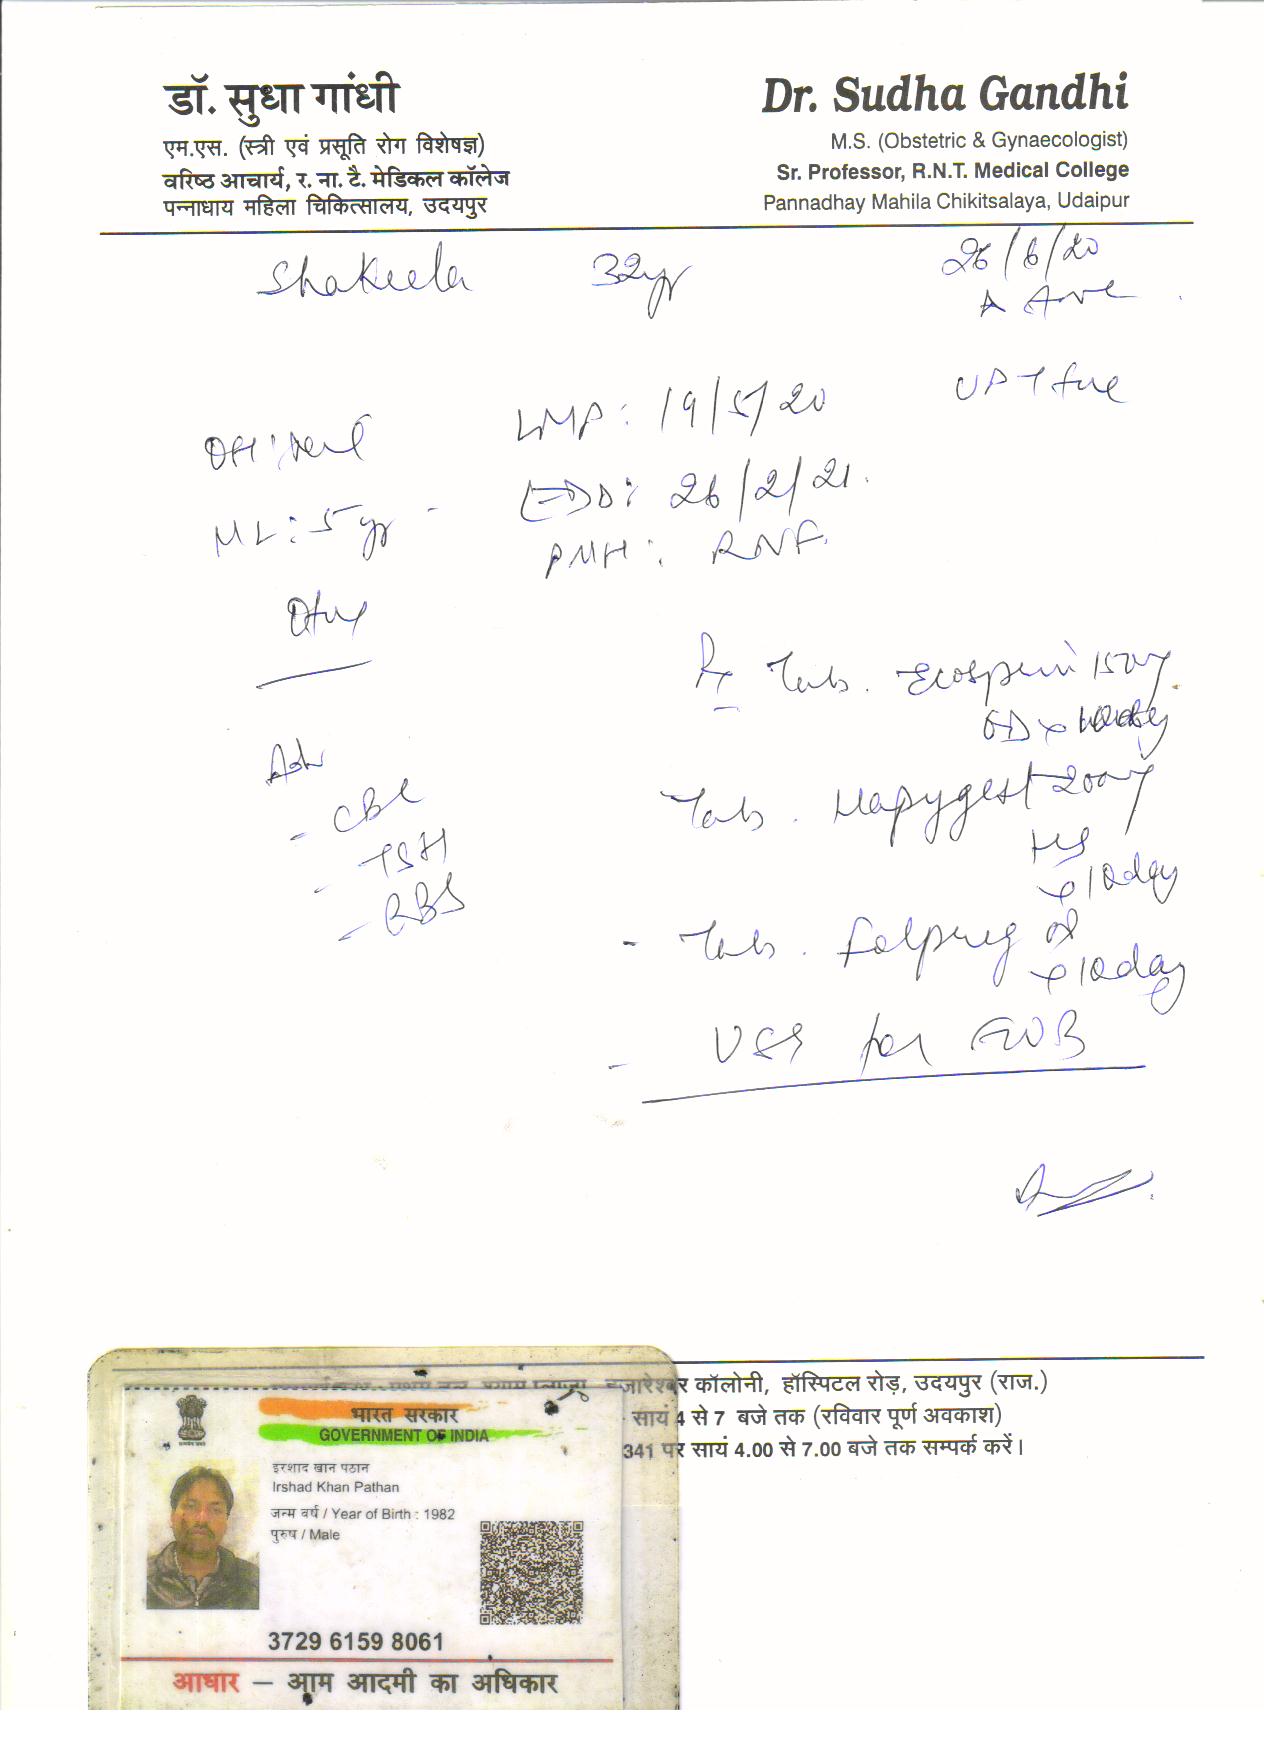 डॉ. सुधा गांधी
एम.एस. (स्त्री एवं प्रसूति रोग विशेषज्ञ)
वरिष्ठ आचार्य, र. ना. टै. मेडिकल कॉलेज
पन्नाधाय महिला चिकित्सालय, उदयपुर
Dr. Sudha Gandhi
M.S. (Obstetric & Gynaecologist)
Sr. Professor, R.N.T. Medical College
Pannadhay Mahila Chikitsalaya, Udaipur
Shakeela 32yr 26/6/20
A +ve
UPT +ve
LMP: 19/5/20
EDD: 26/2/21.
PMH: RNF.
ML: 5yr
Adv
- CBC
- TSH
- RBS
Rx Tab. Ecosprin 150mg
OD x
Tab.
200mg
HS
x 10day
- Tab. Folpreg
x 10day
- USG for FWB
हजारेश्वर कॉलोनी, हॉस्पिटल रोड़, उदयपुर (राज.)
सायं 4 से 7 बजे तक (रविवार पूर्ण अवकाश)
341 पर सायं 4.00 से 7.00 बजे तक सम्पर्क करें।
भारत सरकार
GOVERNMENT OF INDIA
इरशाद खान पठान
Irshad Khan Pathan
जन्म वर्ष / Year of Birth : 1982
पुरुष / Male
3729 6159 8061
आधार – आम आदमी का अधिकार